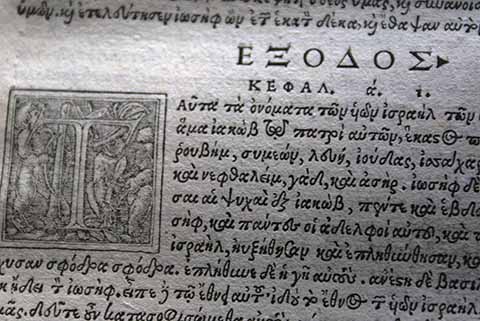 ὑμῶν. κỳ ἐτελεύτησεν ἰωσὴφ ὢν ἐτ ἑκατ δέκα, κỳ ἔθαψαν αὐτ
ΕΞΟΔΟΣ
ΚΕΦΑΛ. ά. ι.
Ταῦτα τὰ ὀνόματα τῶν ἡῶν ἰσραὴλ τῶν
ἅμα ἰακὼβ τῷ πατρὶ αὐτῶν, ἕκαστος
ῥουβὴμ, συμεὼν, λευὴ, ἰούδας, ἰσαχαρ
καὶ νεφθαλεὶμ, γὰδ, καὶ ἀσὴρ. ἰωσὴφ δὲ
σαι αἱ ψυχαὶ ἐξ ἰακὼβ, πέντε καὶ ἑβδο
σὴφ, καὶ πάντες οἱ ἀδελφοὶ αὐτοῦ, καὶ
ἰσραὴλ, ηὐξήθησαν καὶ ἐπληθύνθησαν, κ
χυσαν σφόδρα σφόδρα. ἐπλήθυνε δὲ ἡ γῆ αὐτούς. ἀνέστη δὲ βασιλ
ᾔδει τ ἰωσήφ. εἶπε δὲ τῷ ἔθνει αὐτοῦ. ἰδοὺ τὸ ἔθνος τ ἡῶν ἰσραὴλ
δεῦτε οὖν κατασοφισώμεθα αὐτοὺς